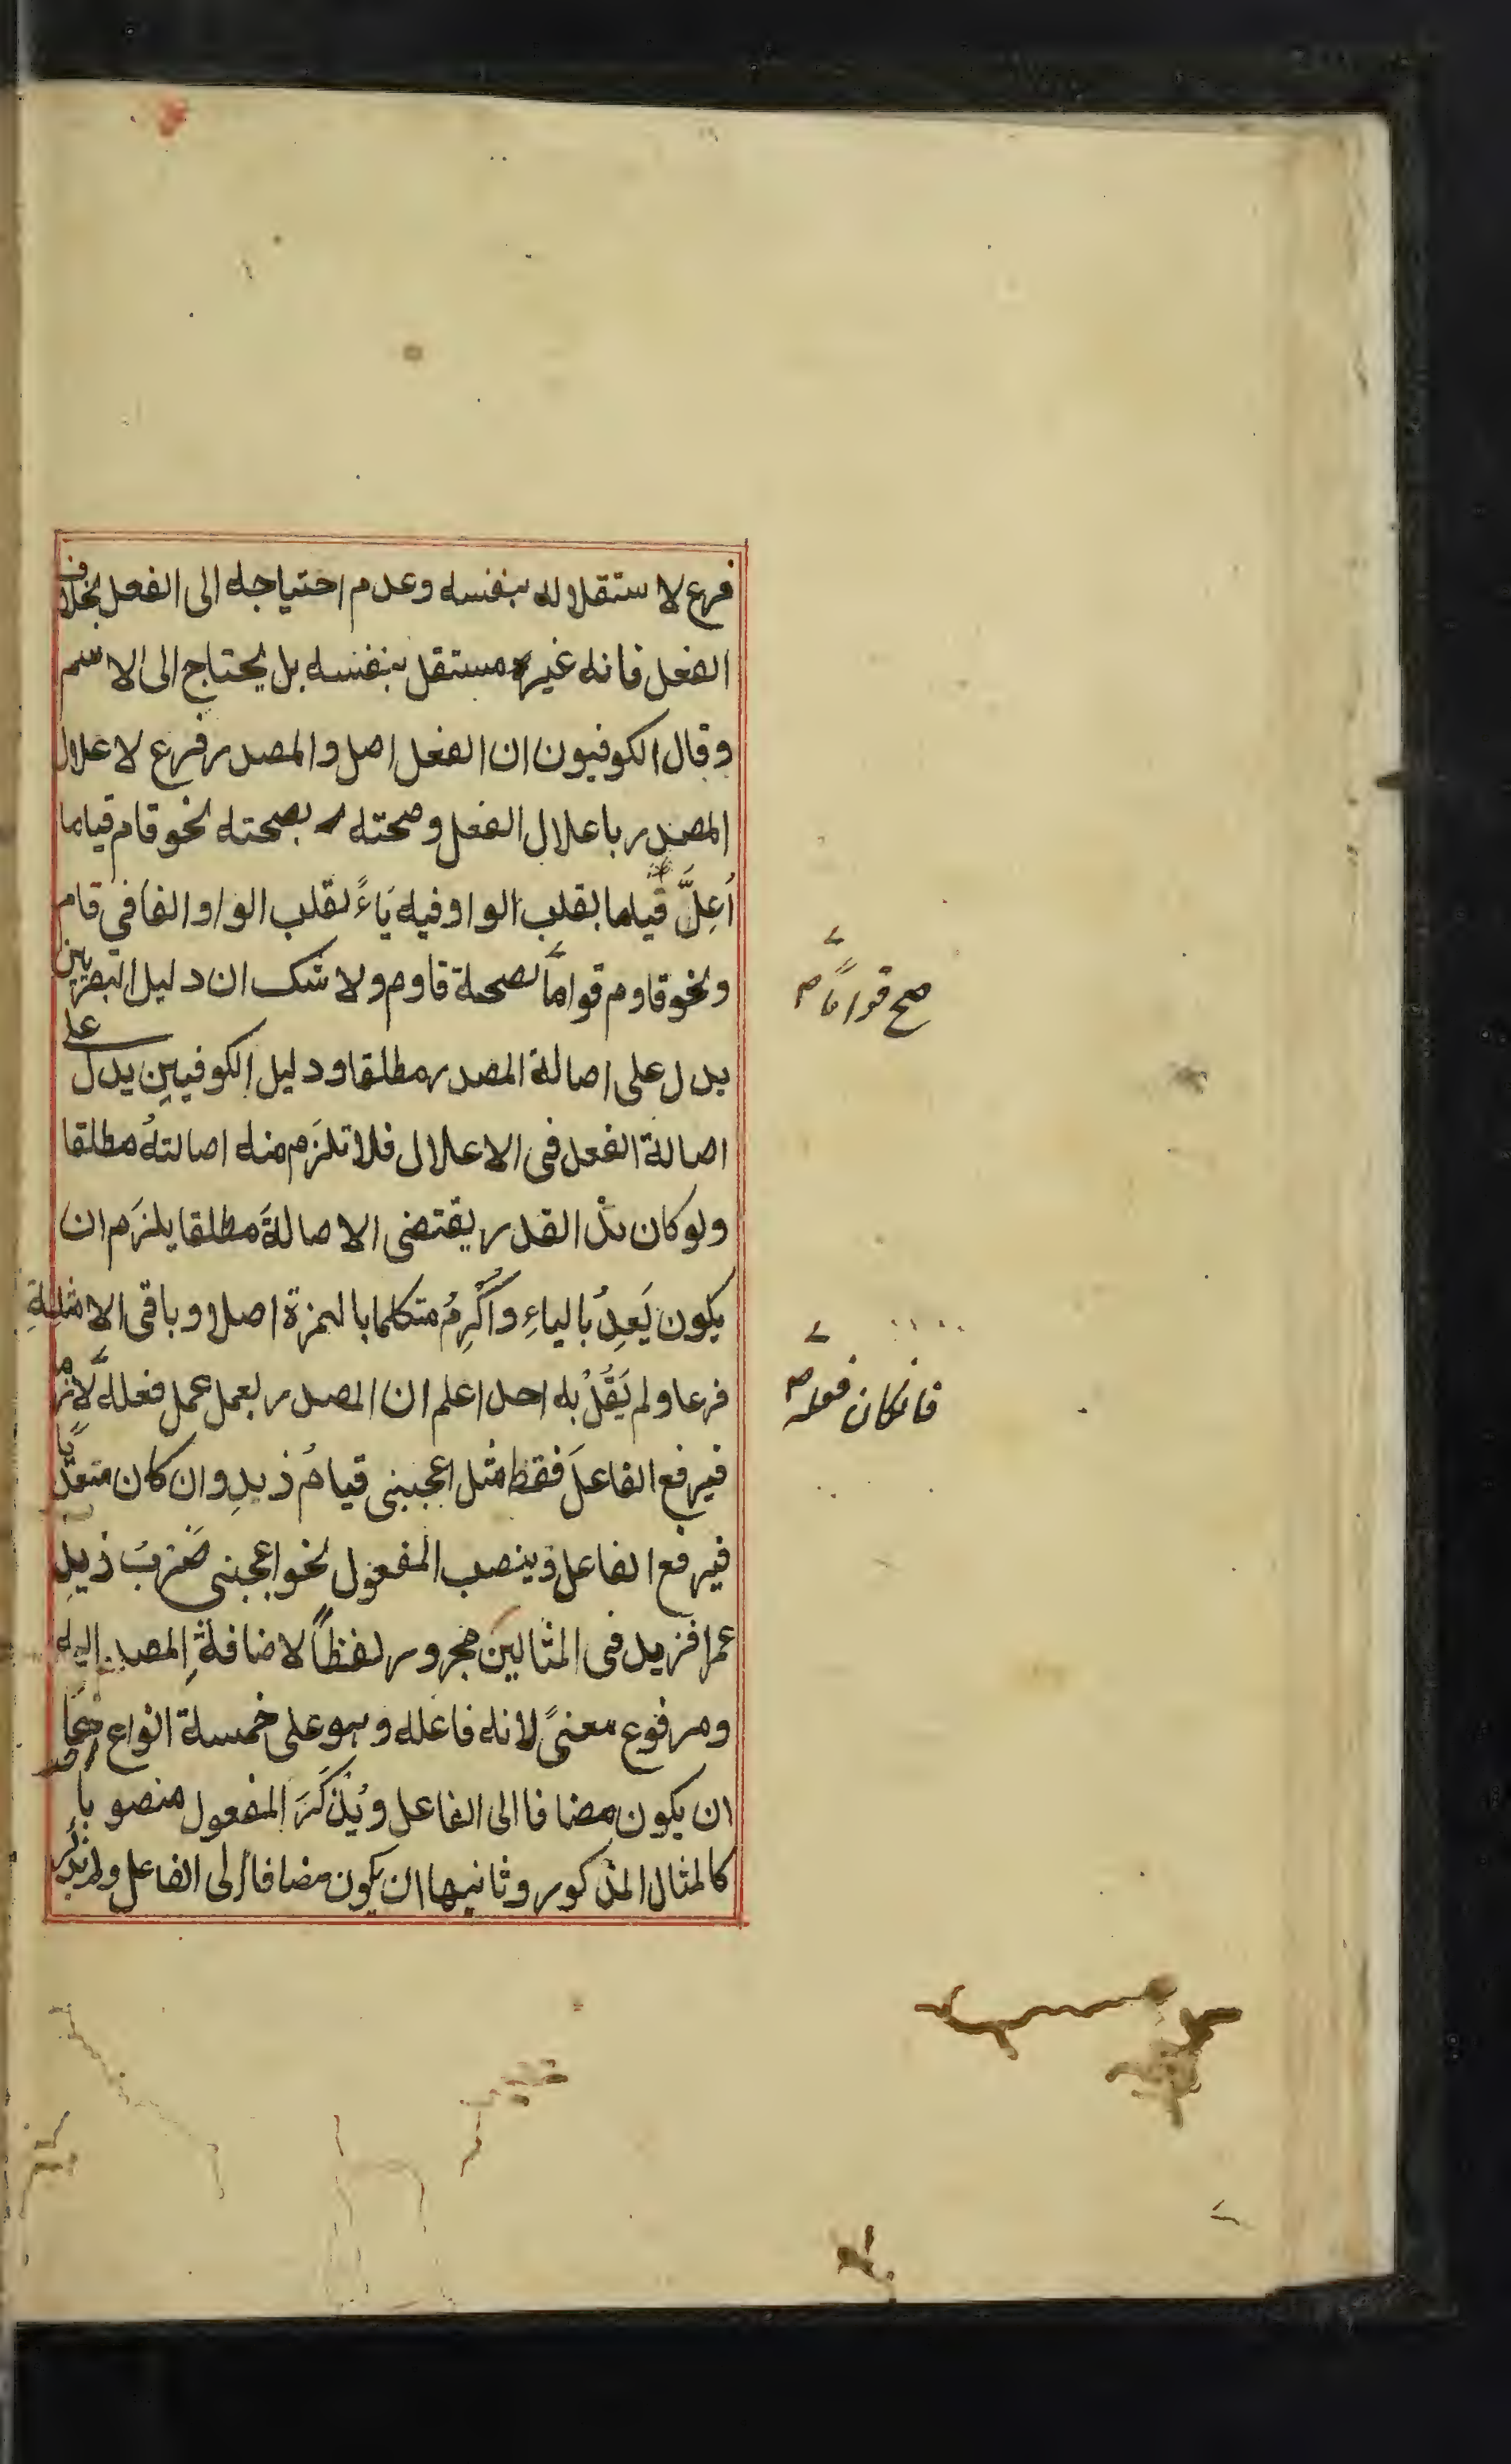 فرع لاستقلاله بنفسه وعدم احتياجه الى الفعل بخلاف
الفعل فانه غير مستقل بنفسه بل يحتاج الى الاسم
وقال الكوفيون ان الفعل اصل والمصدر فرع لاعلال
المصدر باعلال الفعل وصحته بصحته نحو قام قياما
اُعِلَّ قياما بقلب الواو فيه يَاءً لقلب الواو الفا فى قام
ونحو قاوم قواماً لصحة قاوم ولا شك ان دليل البصريين
يدل على اصالة المصدر مطلقا ودليل الكوفيين يدل على
اصالة الفعل فى الاعلال فلا تلزَم منه اصالتهُ مطلقا
ولو كان هذا القدر يقتضى الاصالةَ مطلقا يلزَم ان
يكون يَعِدُ بالياءِ واُكْرِمُ متكلما بالهمزة اصلا وباقى الامثلةِ
فرعا ولم يَقُلْ به احد اعلم ان المصدر يعمل عمل فعله لازما
فيرفع الفاعلَ فقط مثل اعجبنى قيامُ زيدٍ وان كان متعدّياً
فيرفع الفاعل وينصب المفعول نحو اعجبنى ضَربُ زيدٍ
عمرا فزيد فى المثالين مجرور لفظاً لاضافةِ المصدر اليه
ومرفوع معنىً لانه فاعله وهو على خمسة انواع
ان يكون مضافا الى الفاعل ويُذْكَرَ المفعول منصوباً
كالمثال المذكور وثانيها ان يكون مضافا الى الفاعل ولم يذكر
صح قواماً
فانكان فعله